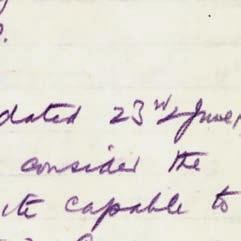 dated 23rd June,
consider the
ite capable to